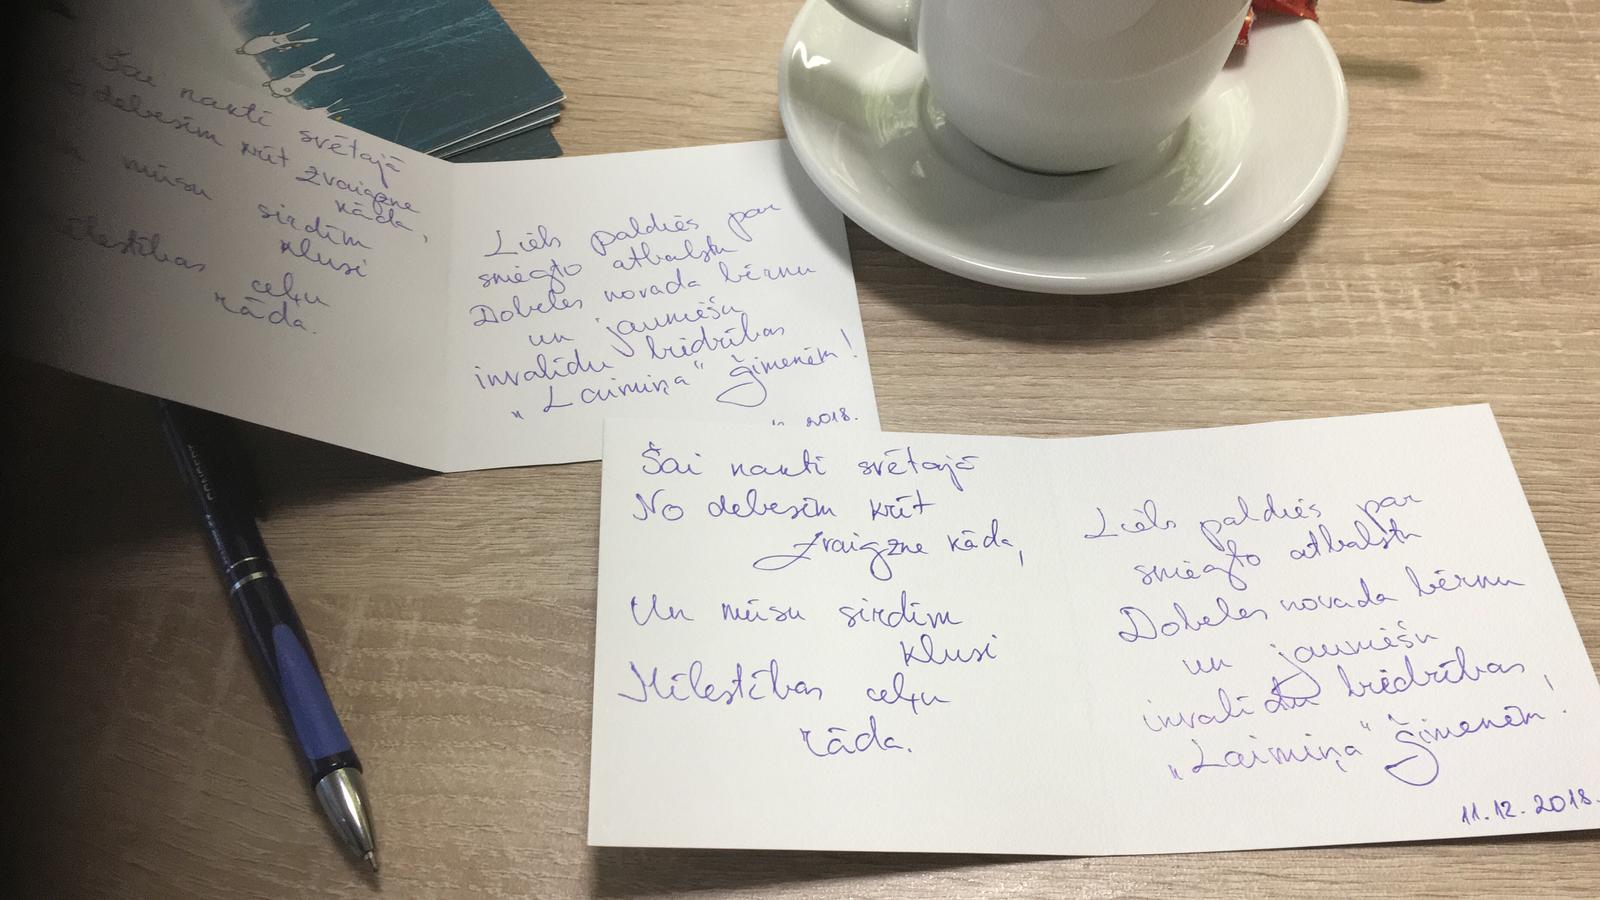 Šai naktī svētajā
debesīm krīt zvaigzne
kāda,
mūsu sirdīm
klusi
ceļu
rāda.
Liels paldies par
sniegto atbalstu
Dobeles novada bērnu
un jauniešu
invalīdu biedrības
"Laimiņa" ģimenēm!
2018.
Šai naktī svētajā
No debesīm krīt
zvaigzne kāda,
Un mūsu sirdīm
klusi
Mīlestības ceļu
rāda.
Liels paldies par
sniegto atbalstu
Dobeles novada bērnu
un jauniešu
invalīdu biedrības
"Laimiņa" ģimenēm!
11.12.2018.